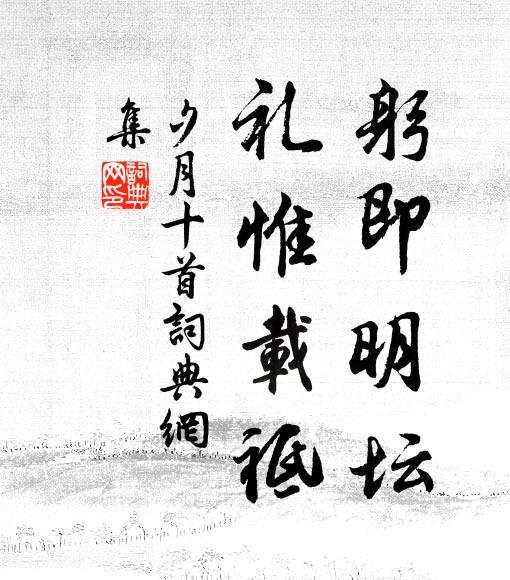 躬即明坛
礼惟載祗
夕月十首詞典網
集
詞典
网印